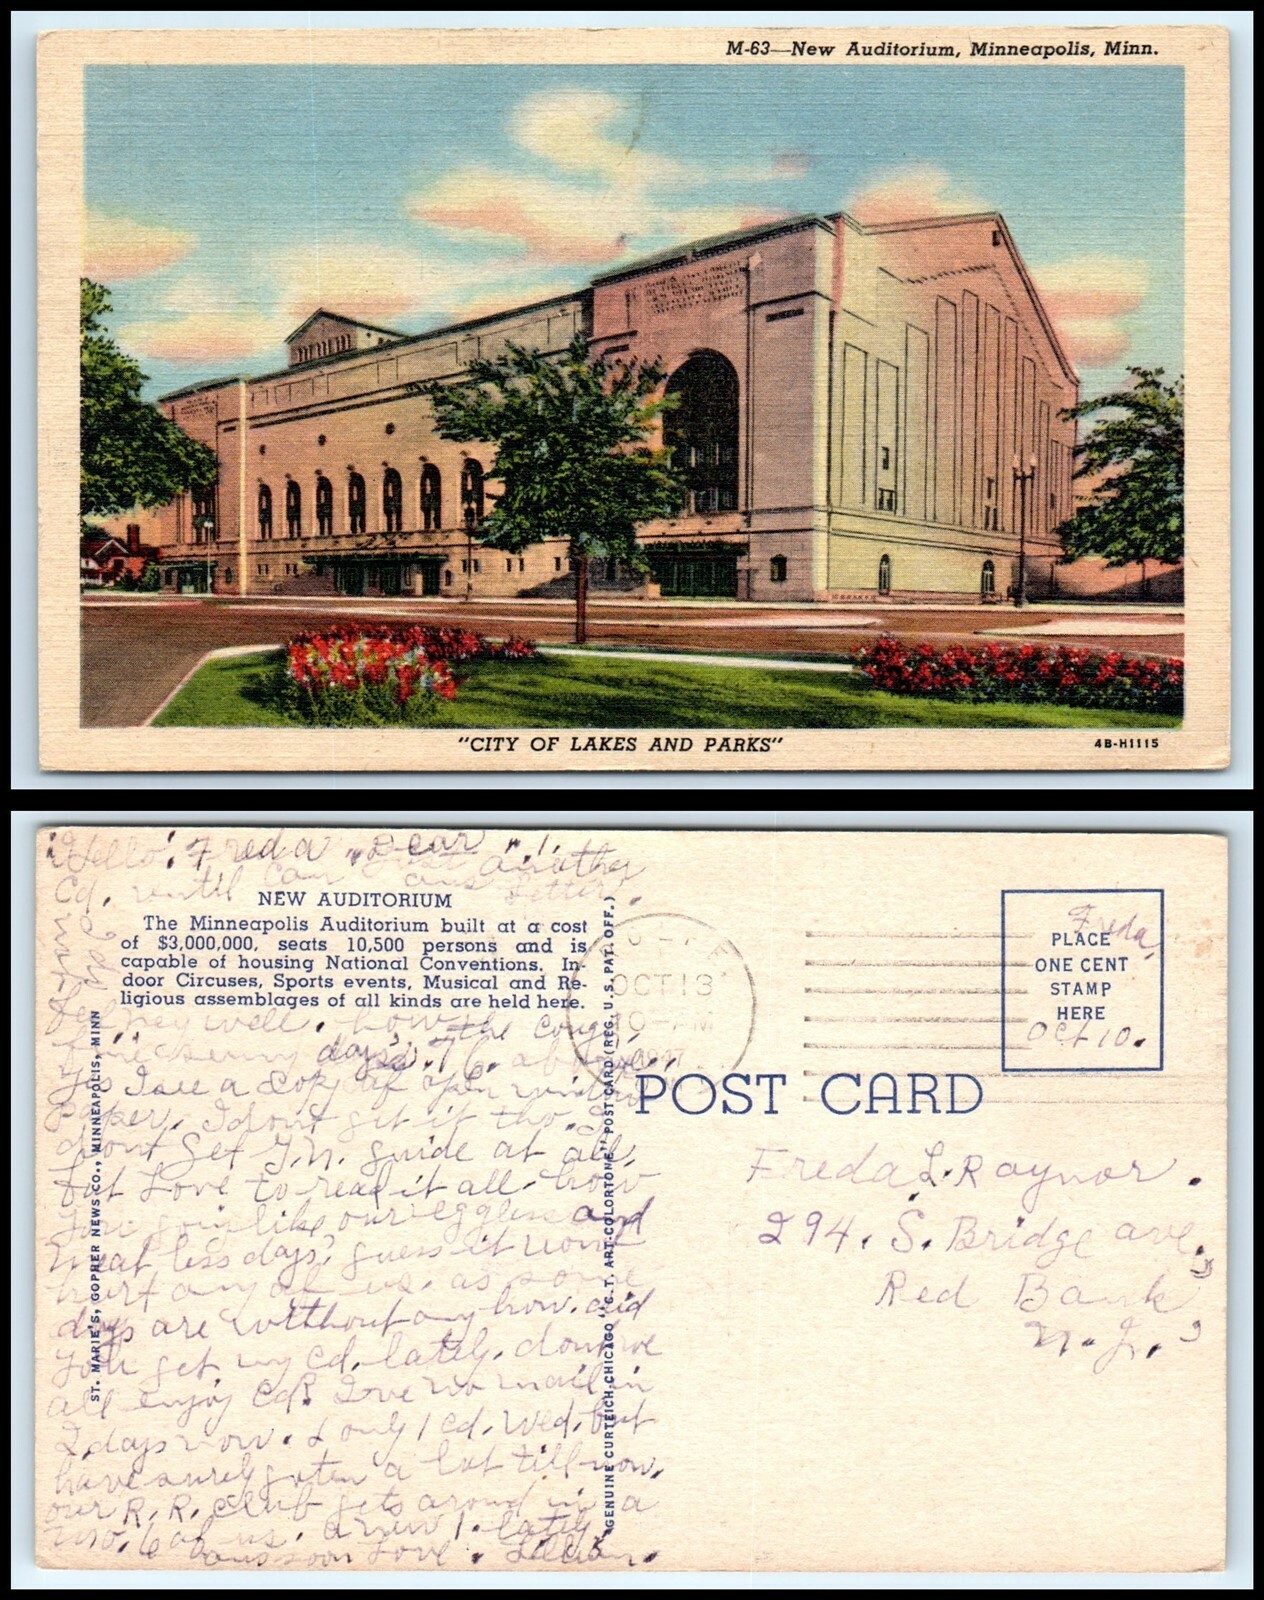 M-63—New Auditorium, Minneapolis, Minn.
"CITY OF LAKES AND PARKS"
4B-H1115
Hello. Freda Dear just another
Cd. until can ans letter.
NEW AUDITORIUM
The Minneapolis Auditorium built at a cost
of $3,000,000, seats 10,500 persons and is
capable of housing National Conventions. In-
door Circuses, Sports events, Musical and Re-
ligious assemblages of all kinds are held here.
well. how the
fine sunny days. 76. above.
Yes I see a copy of open window
paper. I dont get it tho. I
dont get guide at all.
but Love to read it all. how
you like our eggless and
meat less days, guess it wont
hurt any of us. as some
days are without any how. did
you get my cd. lately. dont we
all enjoy Cds. Ive no mail in
2 days now. only 1 cd. Wed. but
have surely goten a lot till now.
our R. R. club gets around in a
mo. 6 of us. a new 1. lately.
ans soon Love. Lillian.
ST. MARIE'S, GOPHER NEWS CO., MINNEAPOLIS, MINN
GENUINE CURTEICH, CHICAGO "C. T. ART-COLORTONE" POST CARD (REG. U. S. PAT. OFF.)
OCT 13
PM
1947
Freda
PLACE
ONE CENT
STAMP
HERE
Oct 10.
POST CARD
Freda L. Raynor.
294. S. Bridge ave.
Red Bank
N. J.